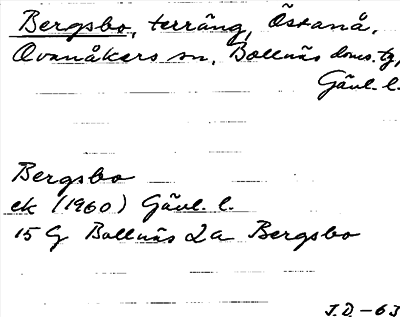 Bergsbo, terräng, Östanå,
Ovanåkers sn, Bollnäs doms. tg,
Gävl. l.
Bergsbo
ek (1960) Gävl. l.
15 G Bollnäs 2a Bergsbo
J.D. -63